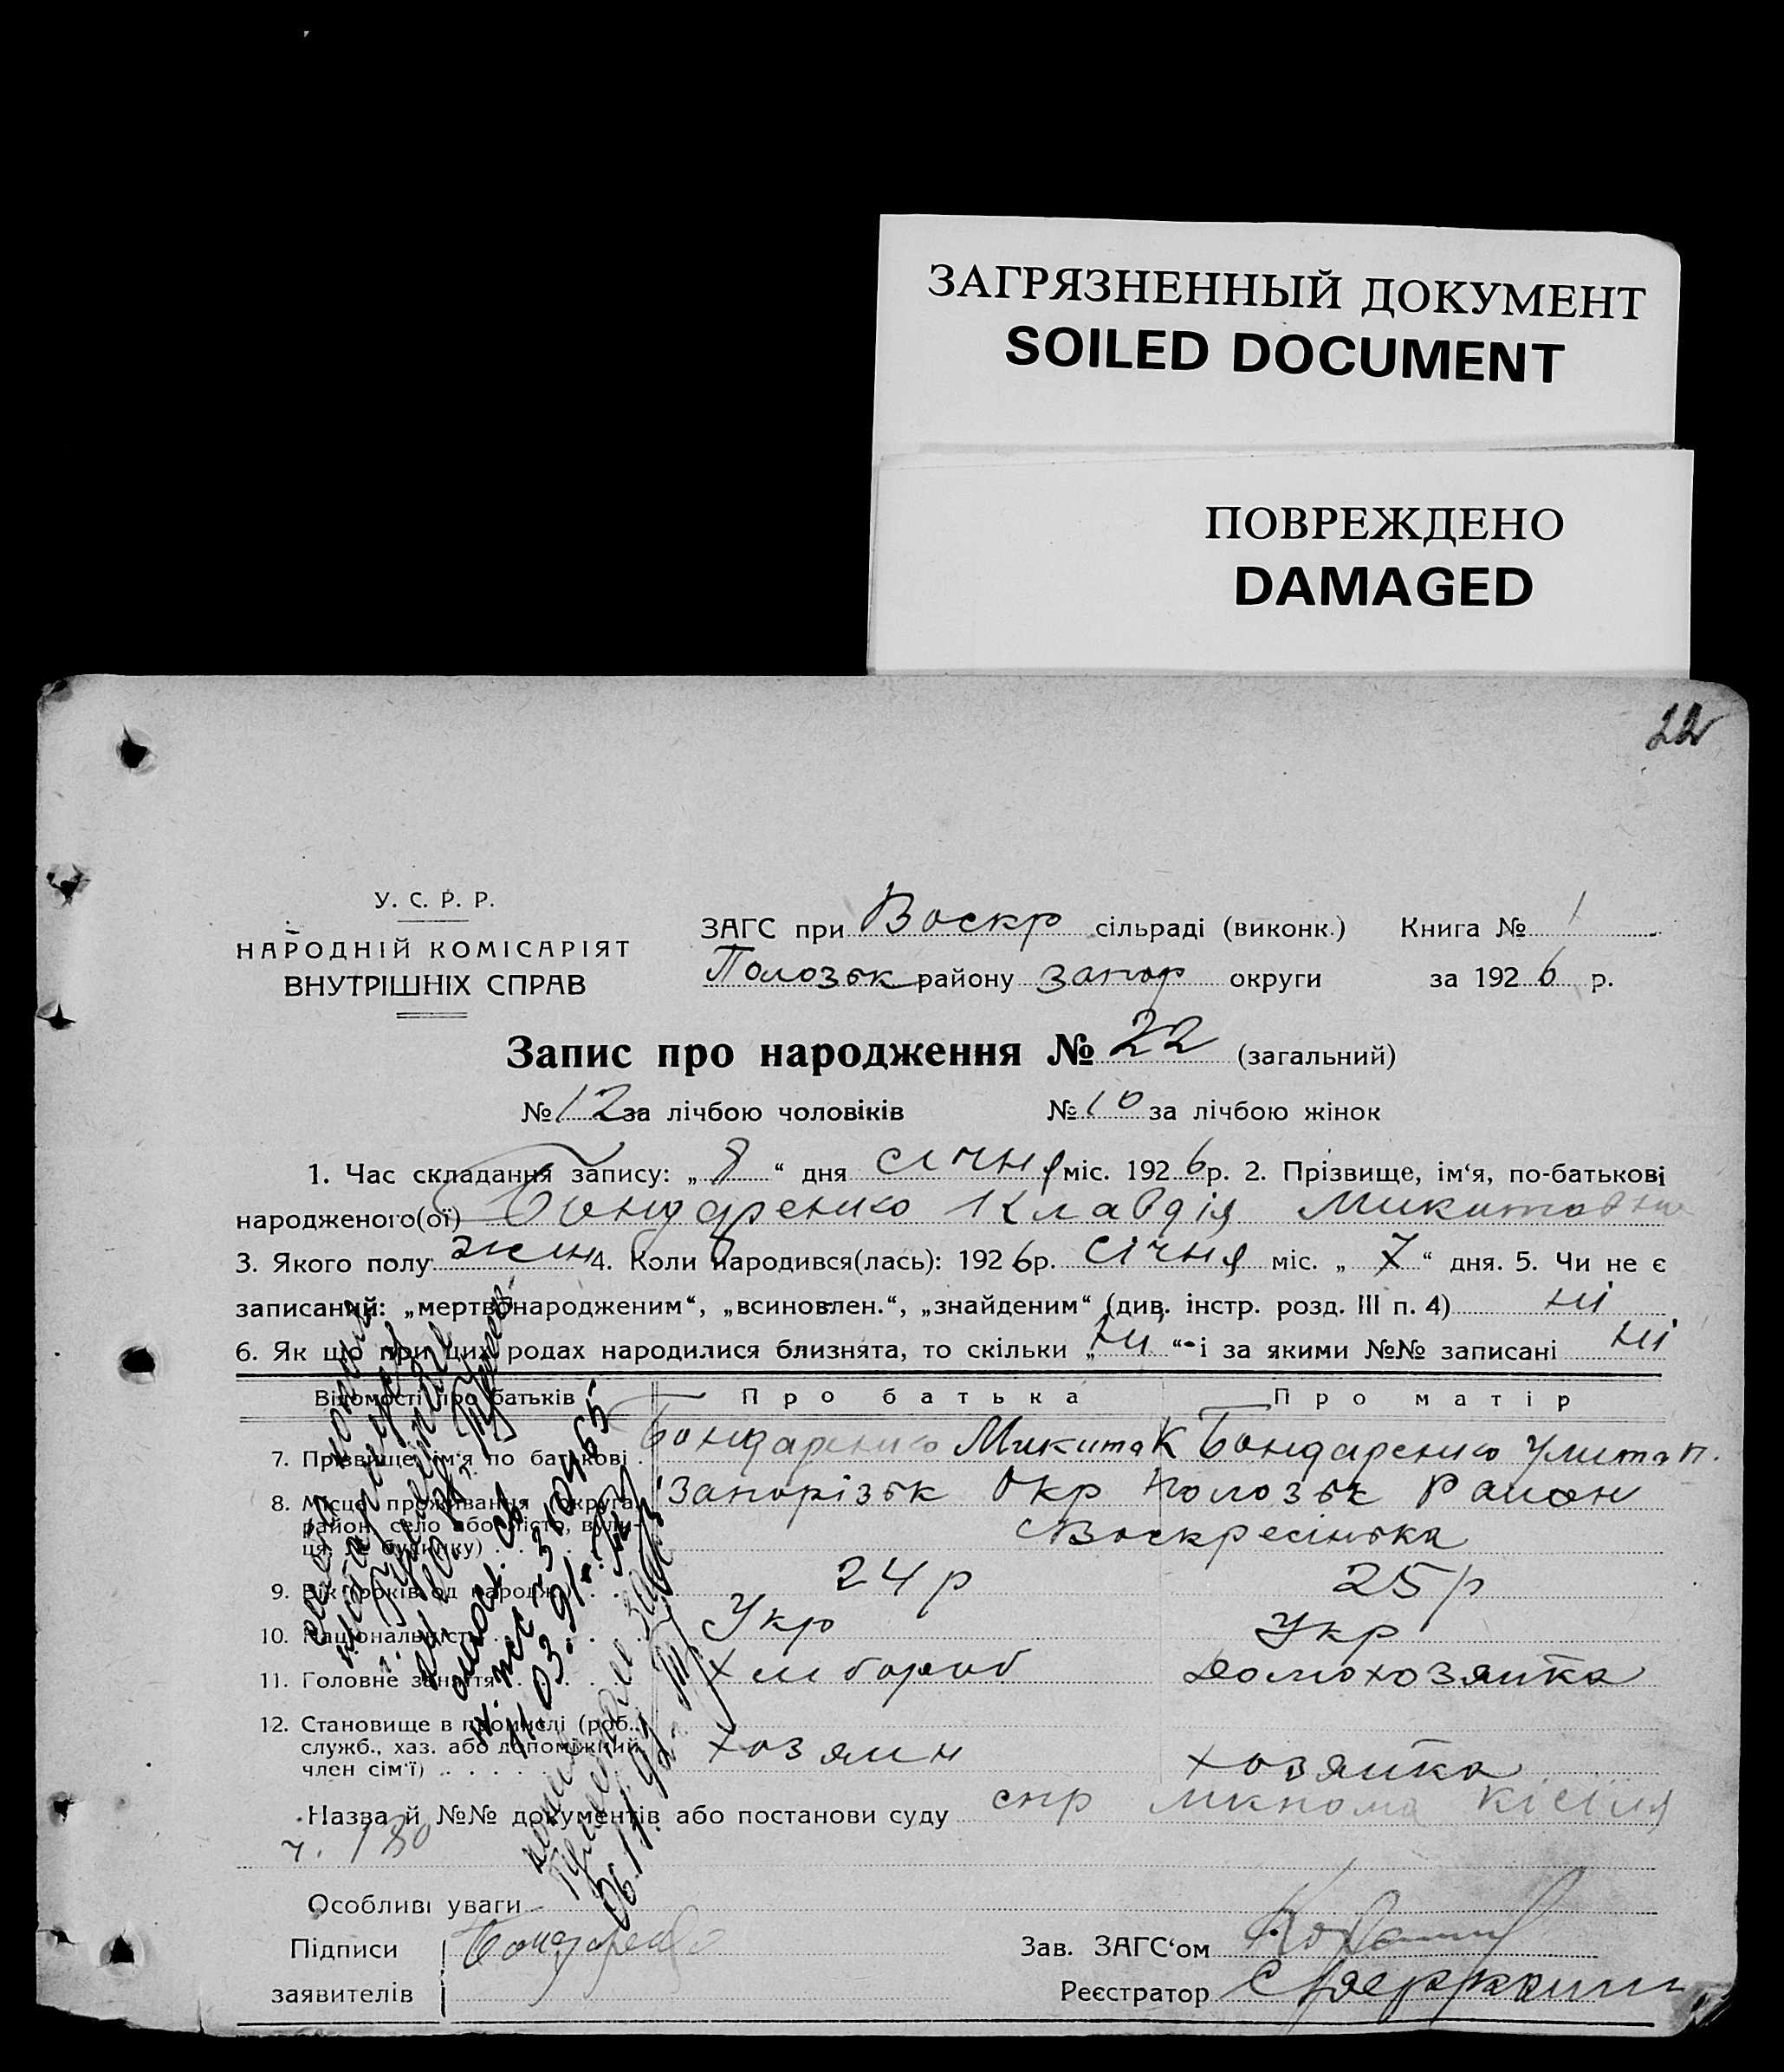 ЗАГРЯЗНЕННЫЙ ДОКУМЕНТ
SOILED DOCUMENT
ПОВРЕЖДЕНО
DAMAGED
22
У. С. Р. Р.
НАРОДНІЙ КОМІСАРІЯТ
ВНУТРІШНІХ СПРАВ
ЗАГС при Воскр сільраді (виконк.) Книга № 1
Полозьк району Запор округи за 1926 р.
Запис про народження № 22 (загальний)
№ 12 за лічбою чоловіків № 10 за лічбою жінок
1. Час складання запису: „ 8 “ дня січня міс. 1926 р. 2. Прізвище, ім‘я, по-батькові
народженого(ої) Бондаренко Клавдія Микитовна
3. Якого полу жін 4. Коли народився(лась): 1926 р. січня міс. „ 7 “ дня. 5. Чи не є
записаний: „мертвонародженим“, „всиновлен.“, „знайденим“ (див. інстр. розд. III п. 4) ні
6. Як що при цих родах народилися близнята, то скільки „ ні “ і за якими №№ записані ні
Відомості про батьків Про батька Про матір
7. Прізвище, ім‘я по батькові Бондаренко Микита К Бондаренко Улита п.
8. Місце проживання (округа, Запорізьк Окр Полозьк Район
район, село або місто, вули-
ця, № будинку) Воскресінька
9. Вік (років од народж.) 24 р 25 р
10. Національність Укр Укр
11. Головне заняття Хлібороб домохозяйка
12. Становище в промислі (роб.,
служб., хаз. або допоміжний
член сім‘ї) хозяин хозяйка
Назва й №№ документів або постанови суду спр
ч. 180
Особливі уваги
Підписи Бондаренко Зав. ЗАГС‘ом
заявителів Реєстратор